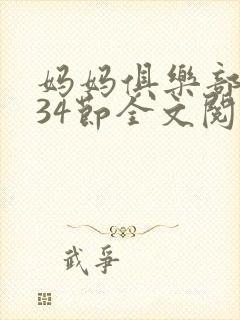 妈妈俱樂部
34節全文閱
武爭